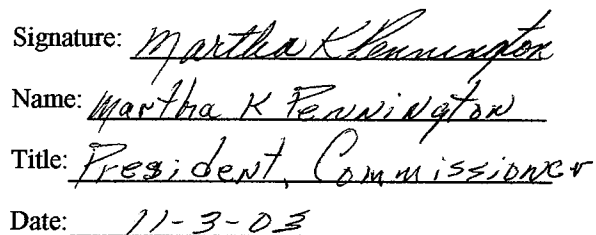 Signature: Martha K Pennington
Name: Martha K Pennington
Title: President, Commissioner
Date: 11-3-03